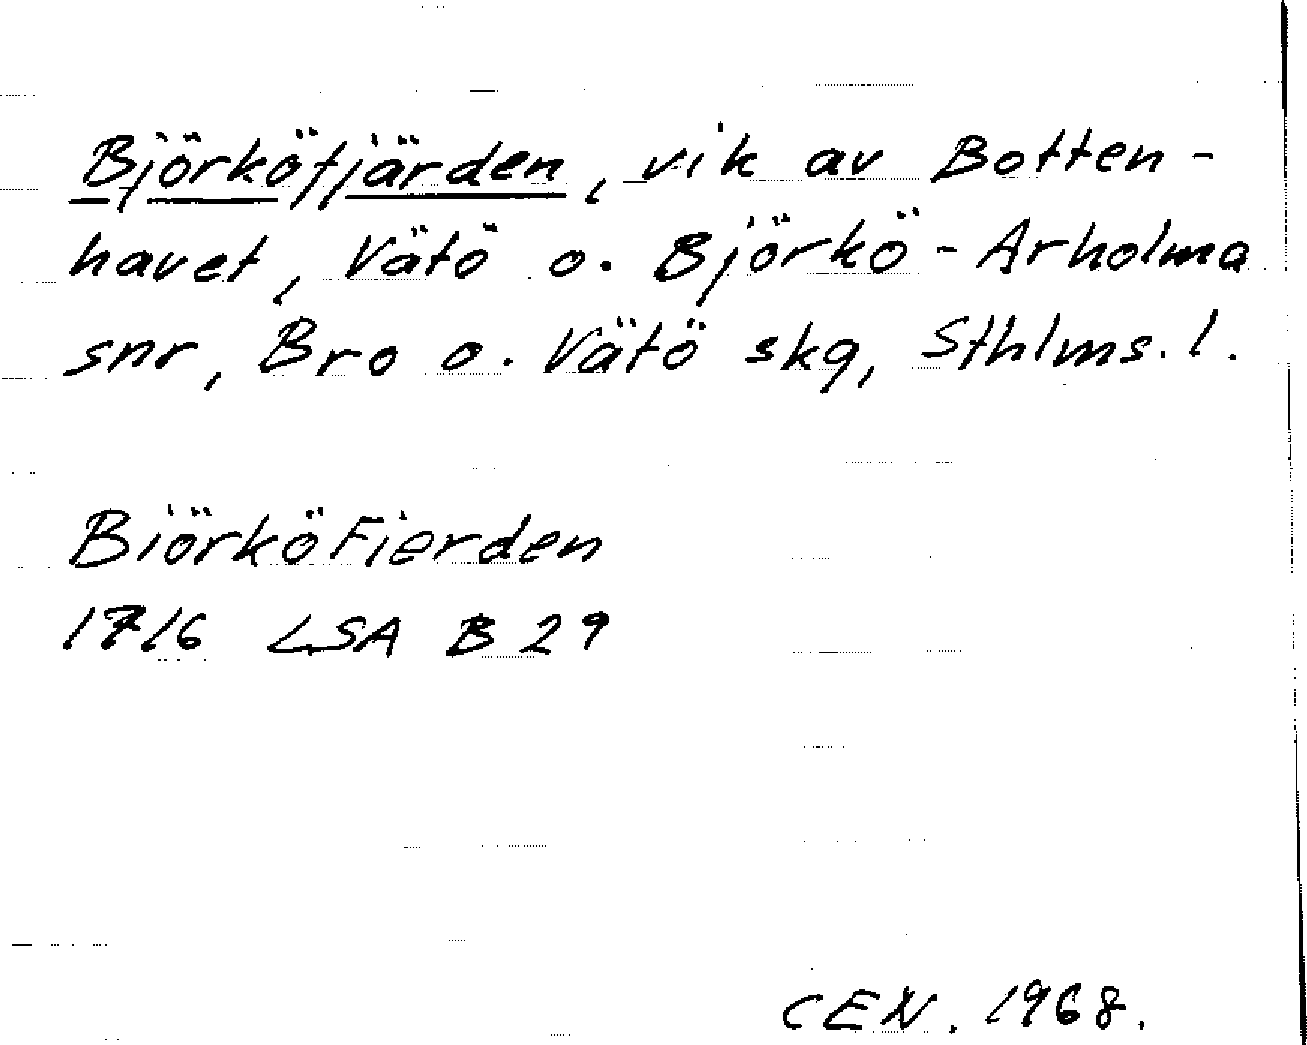 Björköfjärden, vik av Botten-
havet, Vätö o. Björkö-Arholma
snr, Bro o. Vätö skg, Sthlms. l.
BiörköFierden
1716 LSA B 29
CEN. 1968.